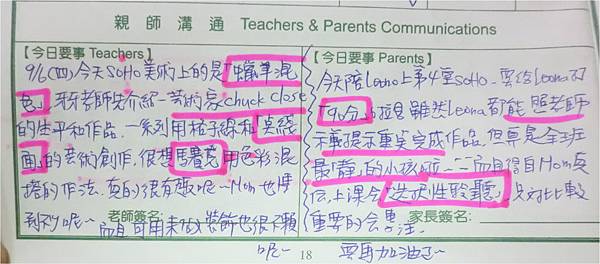 親師溝通 Teachers & Parents Communications
【今日要事 Teachers】
9/6(四)今天SOHO美術上的是「蠟筆混
色」,牙牙老師先介紹一藝術家chuck close
的生平和作品.一系列用格子線和
畫」的藝術創作.很想 用色彩混
搭的作法.真的很有趣呢~Mom也學
到列呢~
老師簽名:
而且可用來做裝飾也很不賴
呢~
【今日要事 Parents】
今天陪Leona上第4堂SOHO.要給Leona
「90分」的拉貝雖然Leona都能照老師
示範提示重點完成作品.但算是全班
最「靜」的小孩 而且得自Mom真
傳,上課會「選擇性聆聽」,只對比較
重要的會專注.
家長簽名:
寶馬加油了~
18